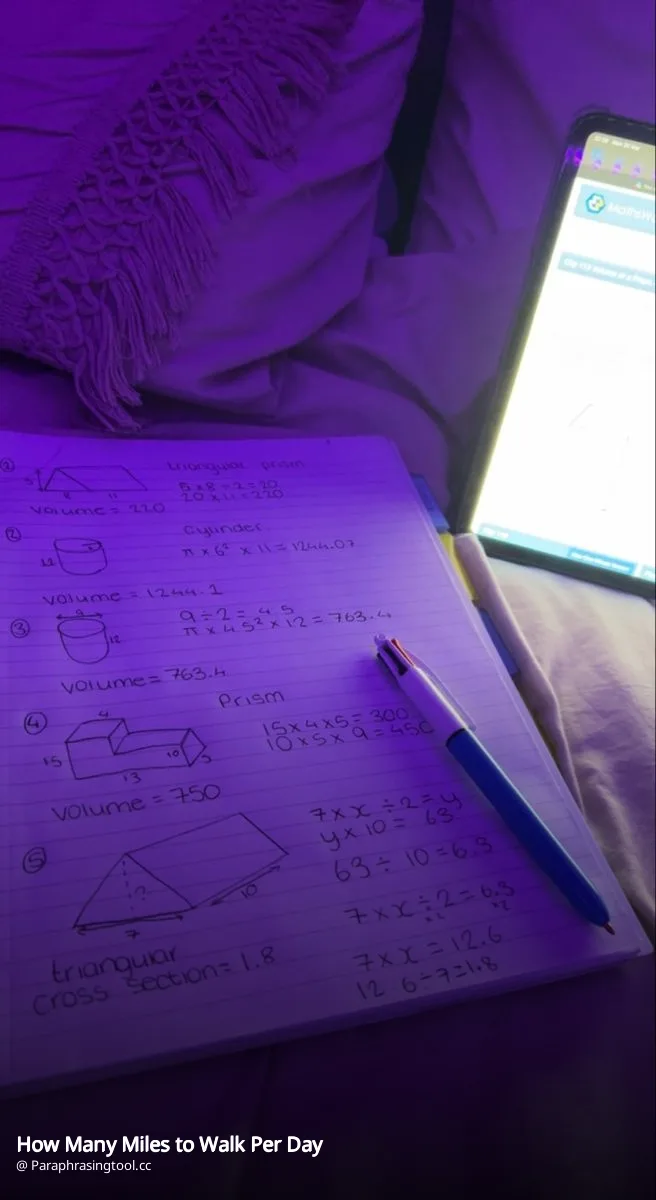 ①
5
8
11
triangular prism
5 x 8 ÷ 2 = 20
20 x 11 = 220
volume = 220
②
11
cylinder
π x 6² x 11 = 1244.07
volume = 1244.1
③
9
12
9 ÷ 2 = 4.5
π x 4.5² x 12 = 763.4
volume = 763.4
④
4
15
10
5
13
Prism
15 x 4 x 5 = 300
10 x 5 x 9 = 450
volume = 750
⑤
?
10
7
7 x x ÷ 2 = y
y x 10 = 63
63 ÷ 10 = 6.3
7 x x ÷ 2 = 6.3
x2 x2
7 x x = 12.6
12.6 ÷ 7 = 1.8
triangular
cross section = 1.8
How Many Miles to Walk Per Day
@ Paraphrasingtool.cc